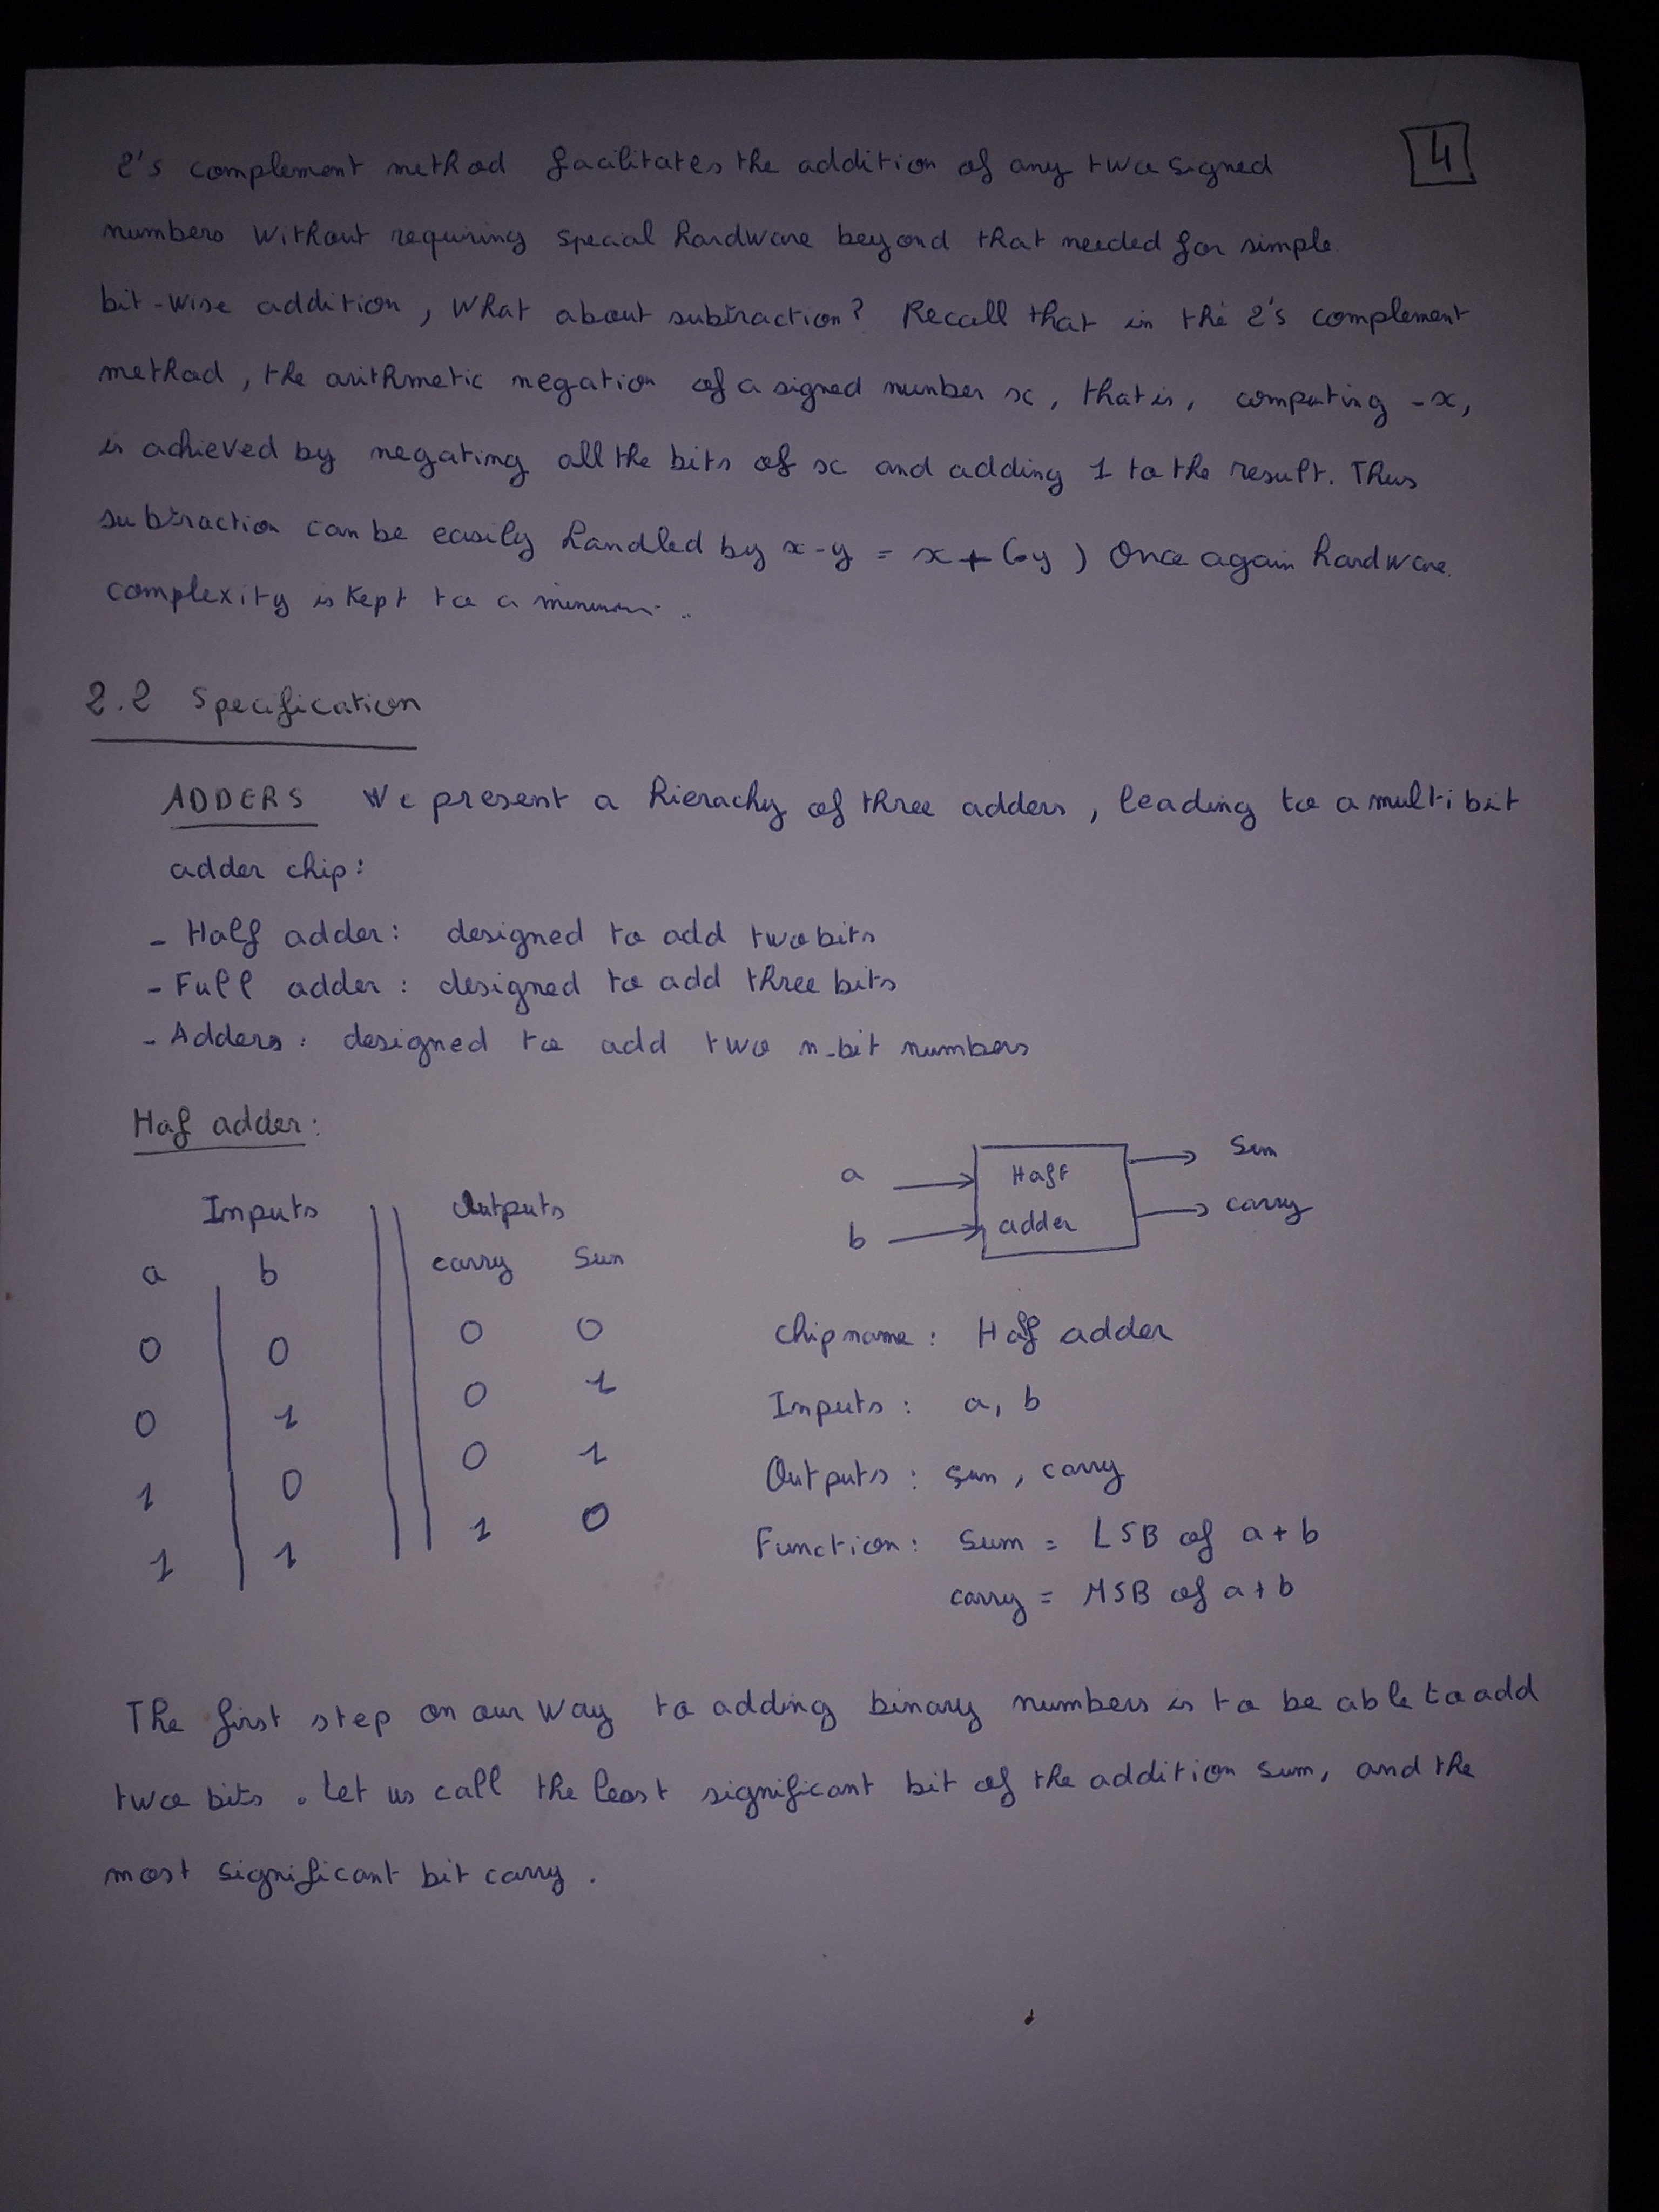 4
2's complement method facilitates the addition of any two signed
numbers without requiring special hardware beyond that needed for simple
bit-wise addition, what about subtraction? Recall that in the 2's complement
method, the arithmetic negation of a signed number x, that is, computing -x,
is achieved by negating all the bits of x and adding 1 to the result. Thus
subtraction can be easily handled by x-y = x+(-y) Once again hardware
complexity is kept to a minimum.
2.2 Specification
ADDERS We present a hierachy of three adders, leading to a multi bit
adder chip:
- Half adder: designed to add two bits
- Full adder: designed to add three bits
- Adders: designed to add two n-bit numbers
Haf adder:
Inputs Outputs
a b carry Sum
0 0 0 0
0 1 0 1
1 0 0 1
1 1 1 0
a Half Sum
b adder carry
chip name: Haf adder
Inputs: a, b
Outputs: sum, carry
Function: sum = LSB of a+b
carry = MSB of a+b
The first step on our way to adding binary numbers is to be able to add
two bits. Let us call the least significant bit of the addition sum, and the
most significant bit carry.